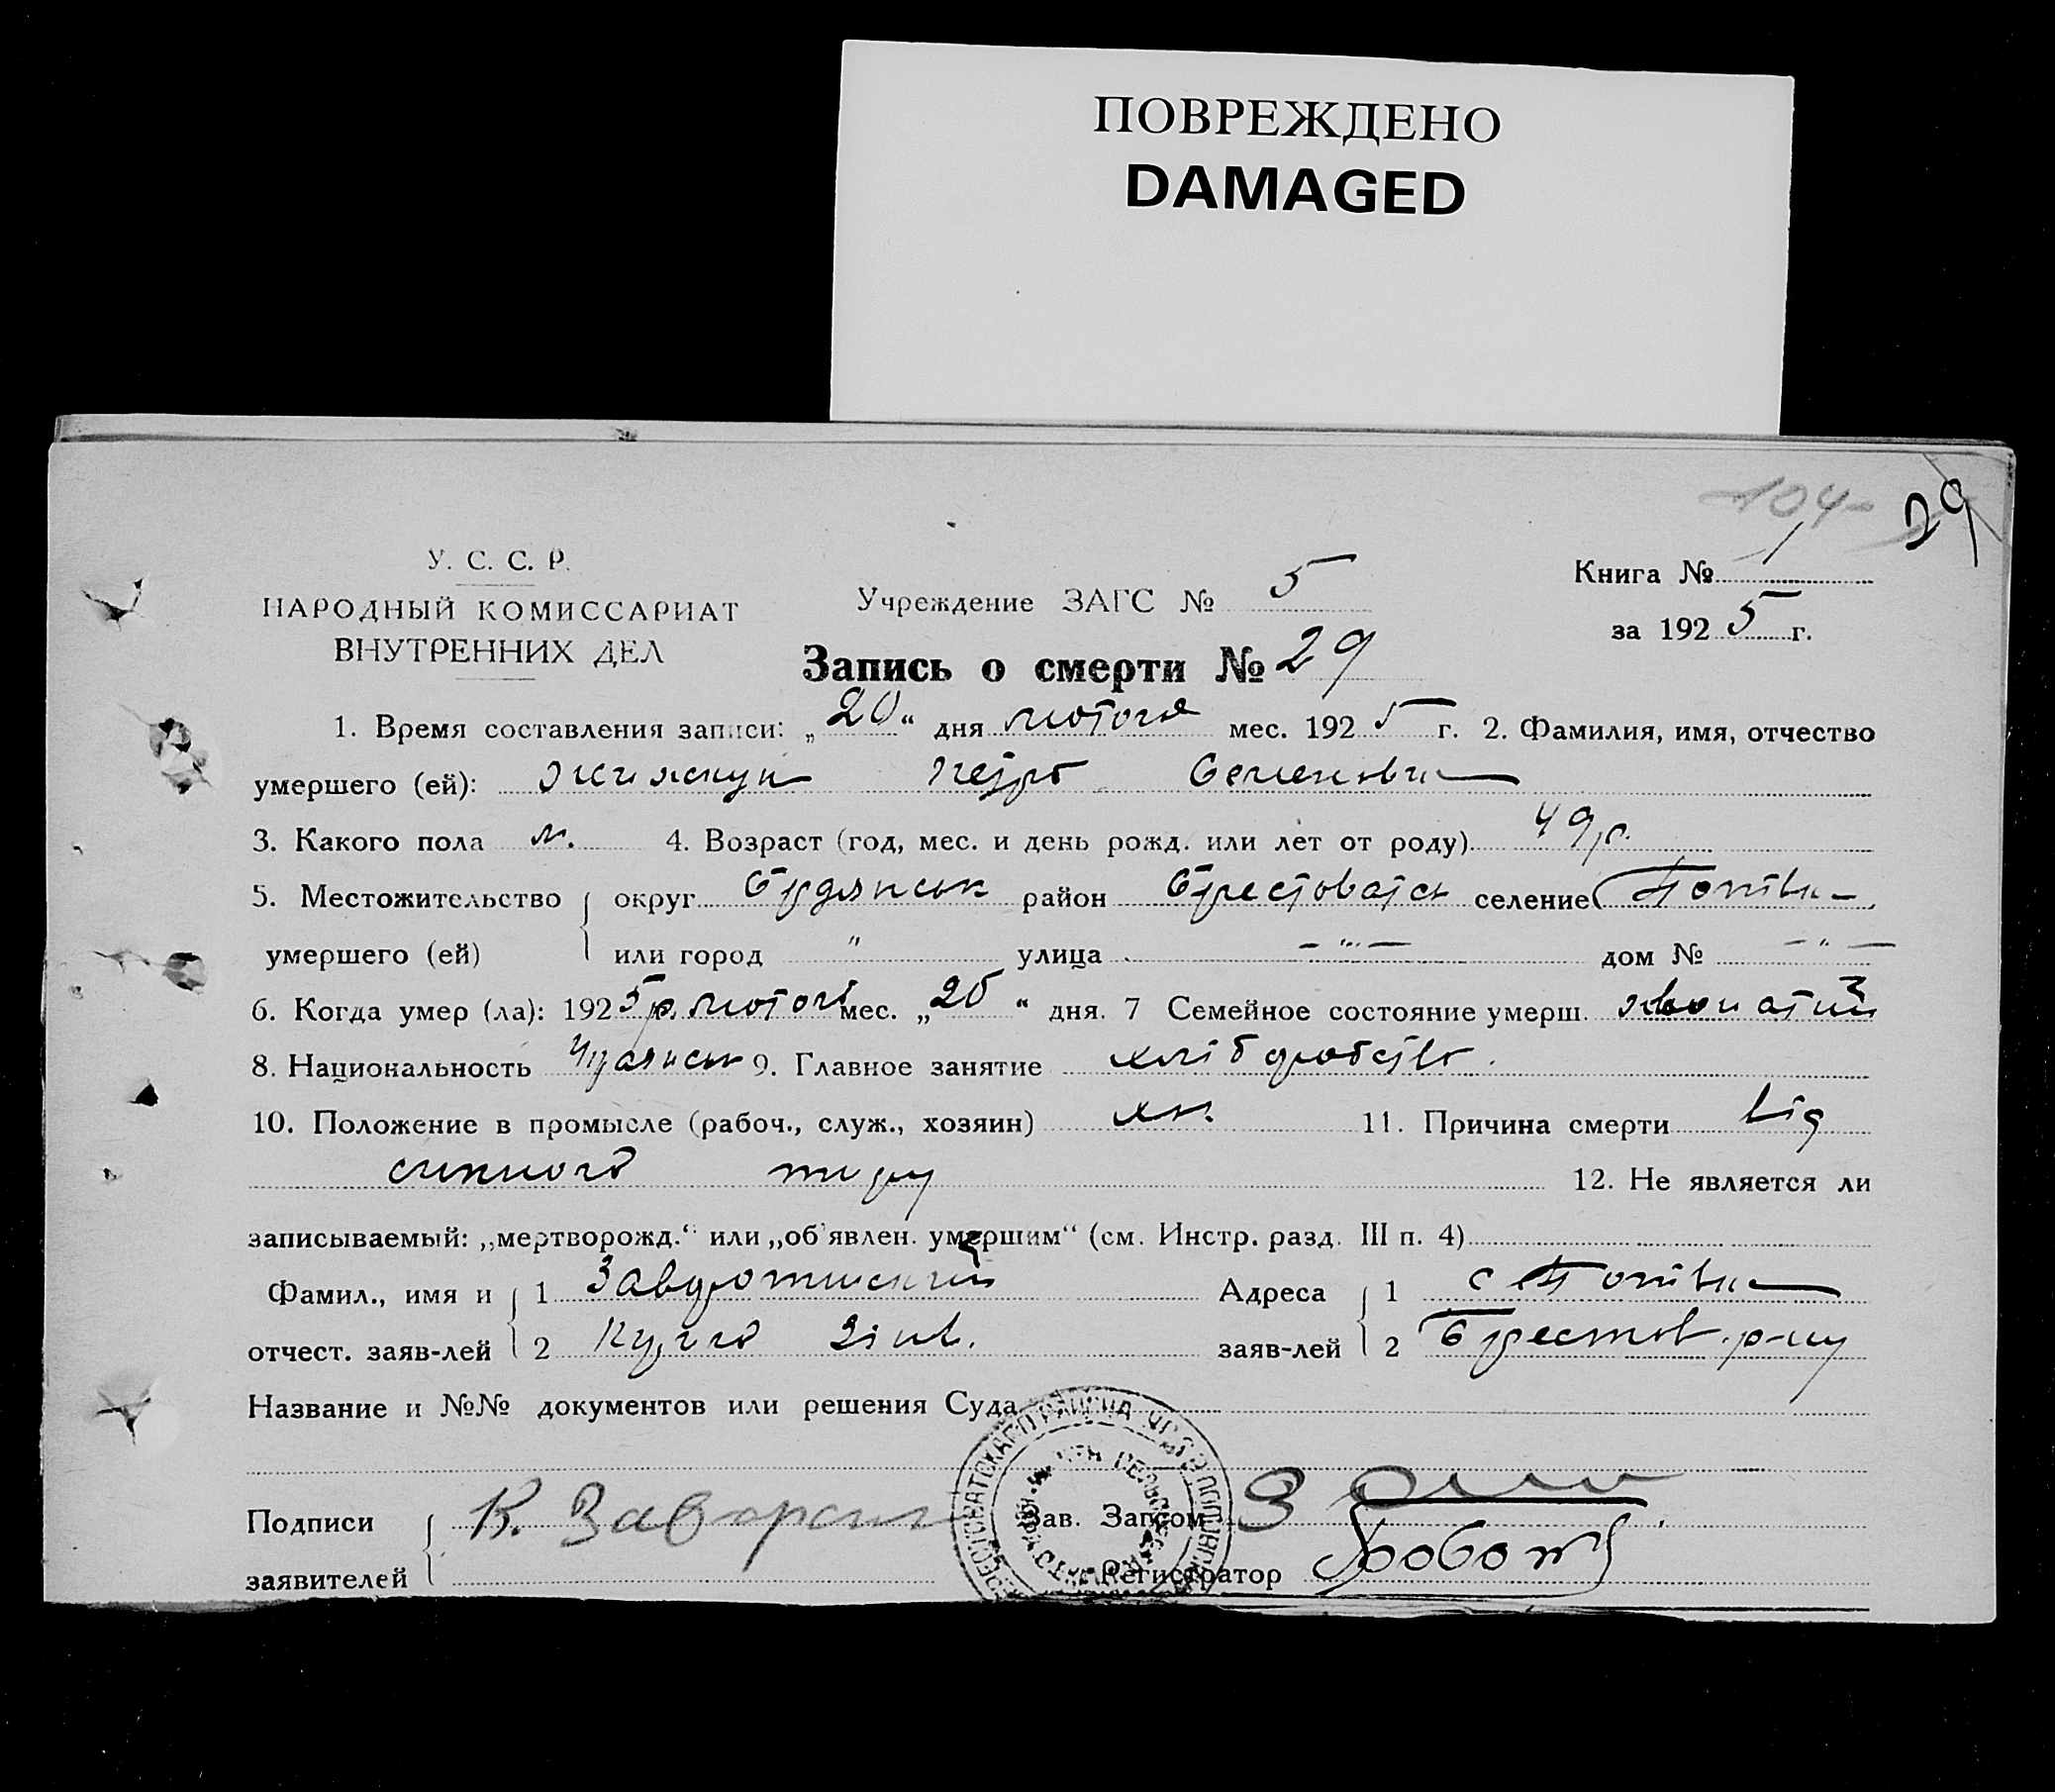 ПОВРЕЖДЕНО
DAMAGED
104
29
У. С. С. Р.
НАРОДНЫЙ КОМИССАРИАТ
ВНУТРЕННИХ ДЕЛ
Учреждение ЗАГС № 5
Книга № 1
за 1925 г.
Запись о смерти № 29
1. Время составления записи: „20“ дня лютого мес. 1925 г. 2. Фамилия, имя, отчество
умершего (ей): Петро Семенович
3. Какого пола м. 4. Возраст (год, мес. и день рожд. или лет от роду) 49 р.
5. Местожительство округ район селение
умершего (ей) или город " улица - " - дом № - " -
6. Когда умер (ла): 1925 р. лютого мес. „20“ дня. 7 Семейное состояние умерш. жонатий
8. Национальность 9. Главное занятие хліборобство.
10. Положение в промысле (рабоч., служ., хозяин) 11. Причина смерти від
сипного тифу 12. Не является ли
записываемый: „мертворожд.“ или „об'явлен. умершим“ (см. Инстр. разд. III п. 4)
Фамил., имя и 1 Адреса 1 с.
отчест. заяв-лей 2 заяв-лей 2 Брестов. р-ну
Название и №№ документов или решения Суда
Подписи К. Зав. Загсом
заявителей Регистратор